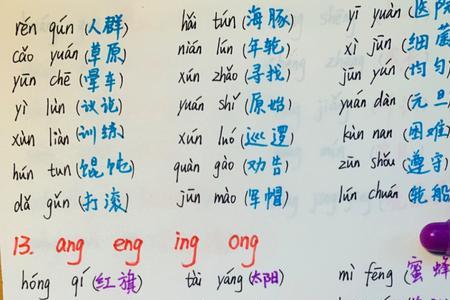 rén qún (人群) hǎi tún (海豚) yī yuàn (医院
cǎo yuán (草原) nián lún (年轮) xì jūn (细菌
yūn chē (晕车) xún zhǎo (寻找) jūn yún (均匀
yì lùn (议论) yuán shǐ (原始) yuán dàn (元旦
xùn liàn (训练) xún luó (巡逻) kùn nan (困难)
hún tun (馄饨) quàn gào (劝告) zūn shǒu (遵守)
dǎ gǔn (打滚) jūn mào (军帽) lún chuán (轮船
13. ang eng ing ong
hóng qí (红旗) tài yáng (太阳) mì fēng (蜜蜂